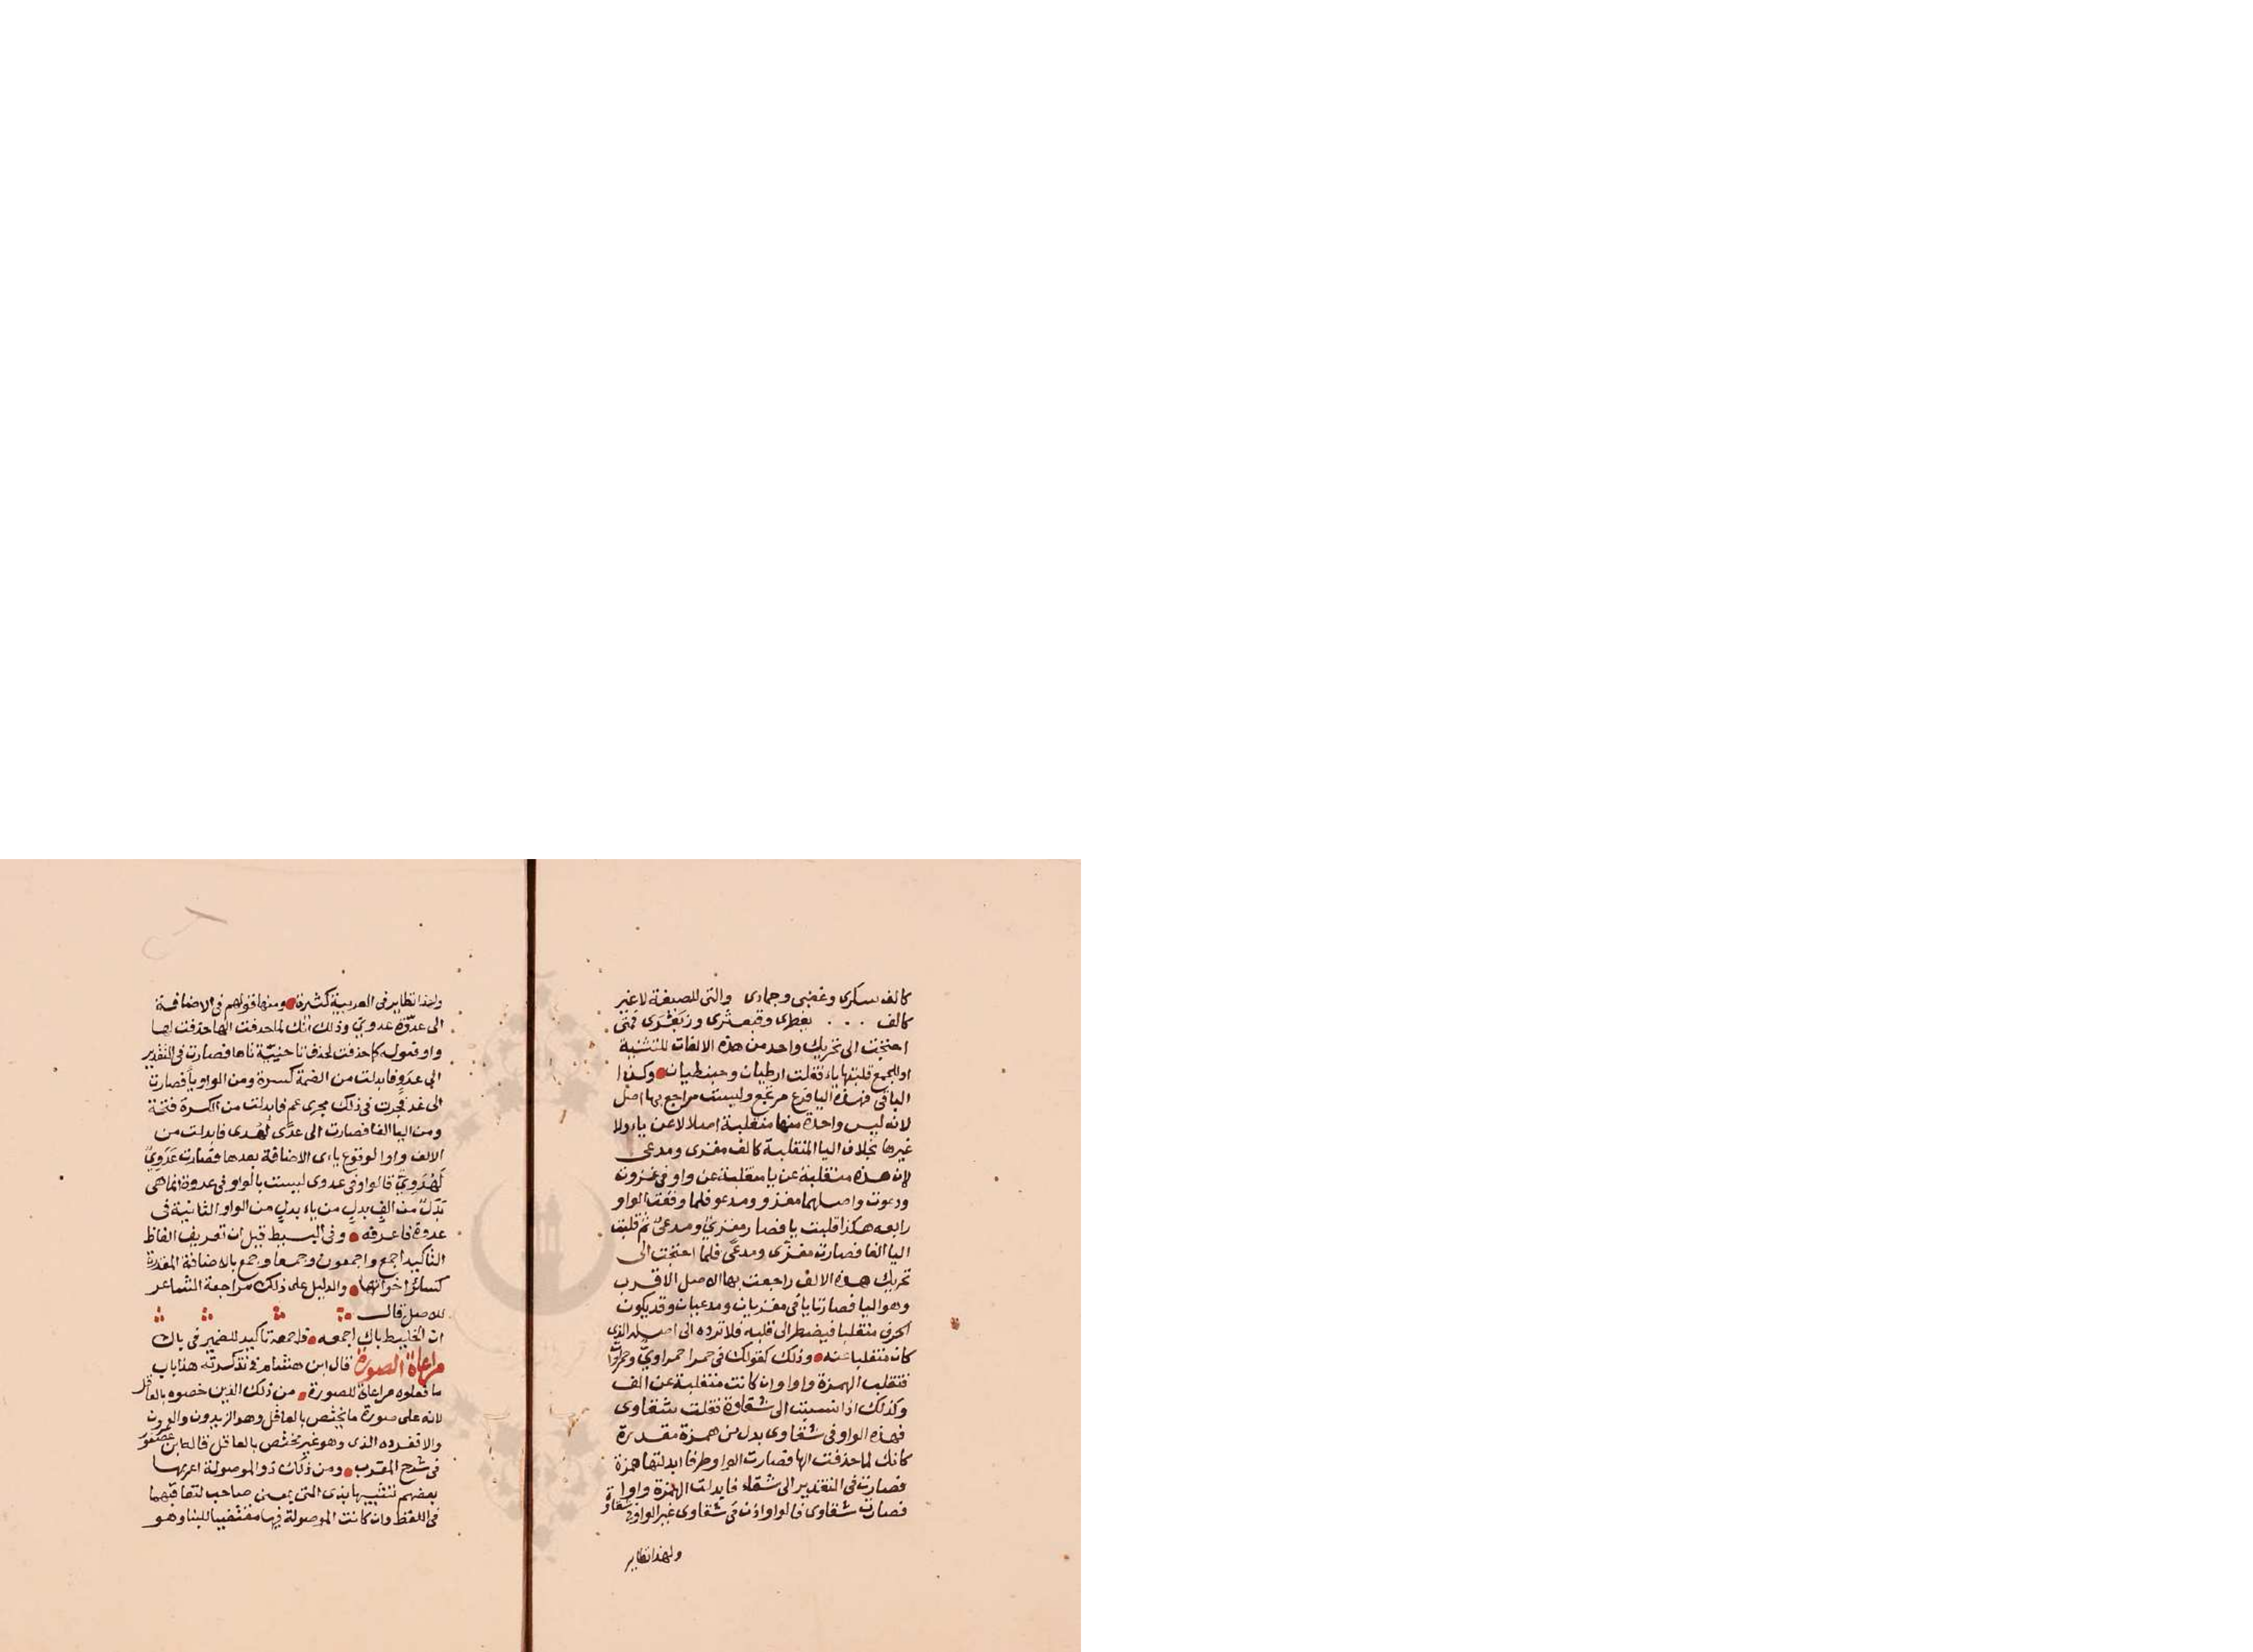 كالف سكرى وغضبى وجمادى والتى للصيغة لا غير
كالف ضبغطرى وقبعثرى وزبعرى فمتى
احتجت الى تحريك واحد من هذه الالفات للتثنية
او للجمع قلبتها ياء فقلت ارطيان وحبنطيان وكذا
الباقى فهذه اليا فرع مرتجع وليست مراجع بها اصل
لانه ليس واحدة منها منقلبة اصلا لا عن ياء ولا
غيرها بخلاف اليا المنقلبة كالف مغزى ومدعى
لان هذه منقلبة عن يا منقلبة عن واو فى غزوت
ودعوت واصلهما مغزو ومدعو فلما وقعت الواو
رابعه هكذا قلبت يا فصار مغزىٌ ومدعىٌ ثم قلبت
اليا الفا فصارت مغزًى ومدعًى فلما احتجت الى
تحريك هذه الالف راجعت بها الاصل الاقرب
وهو اليا فصارتا يا فى مغزيان ومدعيان وقد يكون
الحرف منقلبا فيضطر الى قلبه فلا ترده الى اصله الذى
كان منقلبا عنه وذلك كقولك فى حمرا حمراوىّ وحمراوات
فتقلب الهمزة واوا وان كانت منقلبة عن الف
وكذلك اذا نسبت الى شقاوة فقلت شقاوى
فهذه الواو فى شقاوى بدل من همزة مقدرة
كانك لما حذفت الها فصارت الواو طرفا ابدلتها همزة
فصارت فى التقدير الى شقاء فابدلت الهمزة واوا
فصارت شقاوى فالواو اذن فى شقاوى غير الواو فى شقاوة
ولهذا نظاير
ولهذا نظاير فى العربية كثيرة ومنها قولهم فى الاضافة
الى عدوّة عدوىّ وذلك انك لما حذفت الها حذفت لها
واو فعوله كما حذفت لحذف تا حنيفة ياها فصارت فى التقدير
الى عدوٍ فابدلت من الضمة كسرة ومن الواو ياً فصارت
الى عدٍ فجرت فى ذلك مجرى عمٍ فابدلت من الكسرة فتحة
ومن اليا الفا فصارت الى عدًى كهدى فابدلت من
الالف واوا لوقوع ياى الاضافة بعدها فصارت عَدَوِىّ
كهُدَوِىّ فالواو فى عدوى ليست بالواو فى عدوة انما هى
بدل من الفٍ بدلٍ من ياء بدلٍ من الواو الثانية فى
عدوة فاعرفه وفى البسيط قيل ان تعريف الفاظ
التاكيد اجمع واجمعون وجمعا وجمع بالاضافة المقدرة
كسائر اخواتها والدليل على ذلك مراجعة الشاعر
للاصل قال
ان الخليط باك اجمعه فاجمعه تاكيد للضمير فى باك
مراعاة الصورة قال ابن هشام فى تذكرته هذا باب
ما فعلوه مراعاة للصورة من ذلك الذين خصوه بالعاقل
لانه على صورة ما يختص بالعاقل وهو الزيدون والعمرون
والا فمفرده الذى وهو غير مختص بالعاقل قاله ابن عصفور
فى شرح المقرب ومن ذلك ذو الموصولة اعربها
بعضهم تشبيها بذى التى بمعنى صاحب لتعاقبهما
فى اللفظ وان كانت الموصولة فيها مقتضيا للبنا وهو